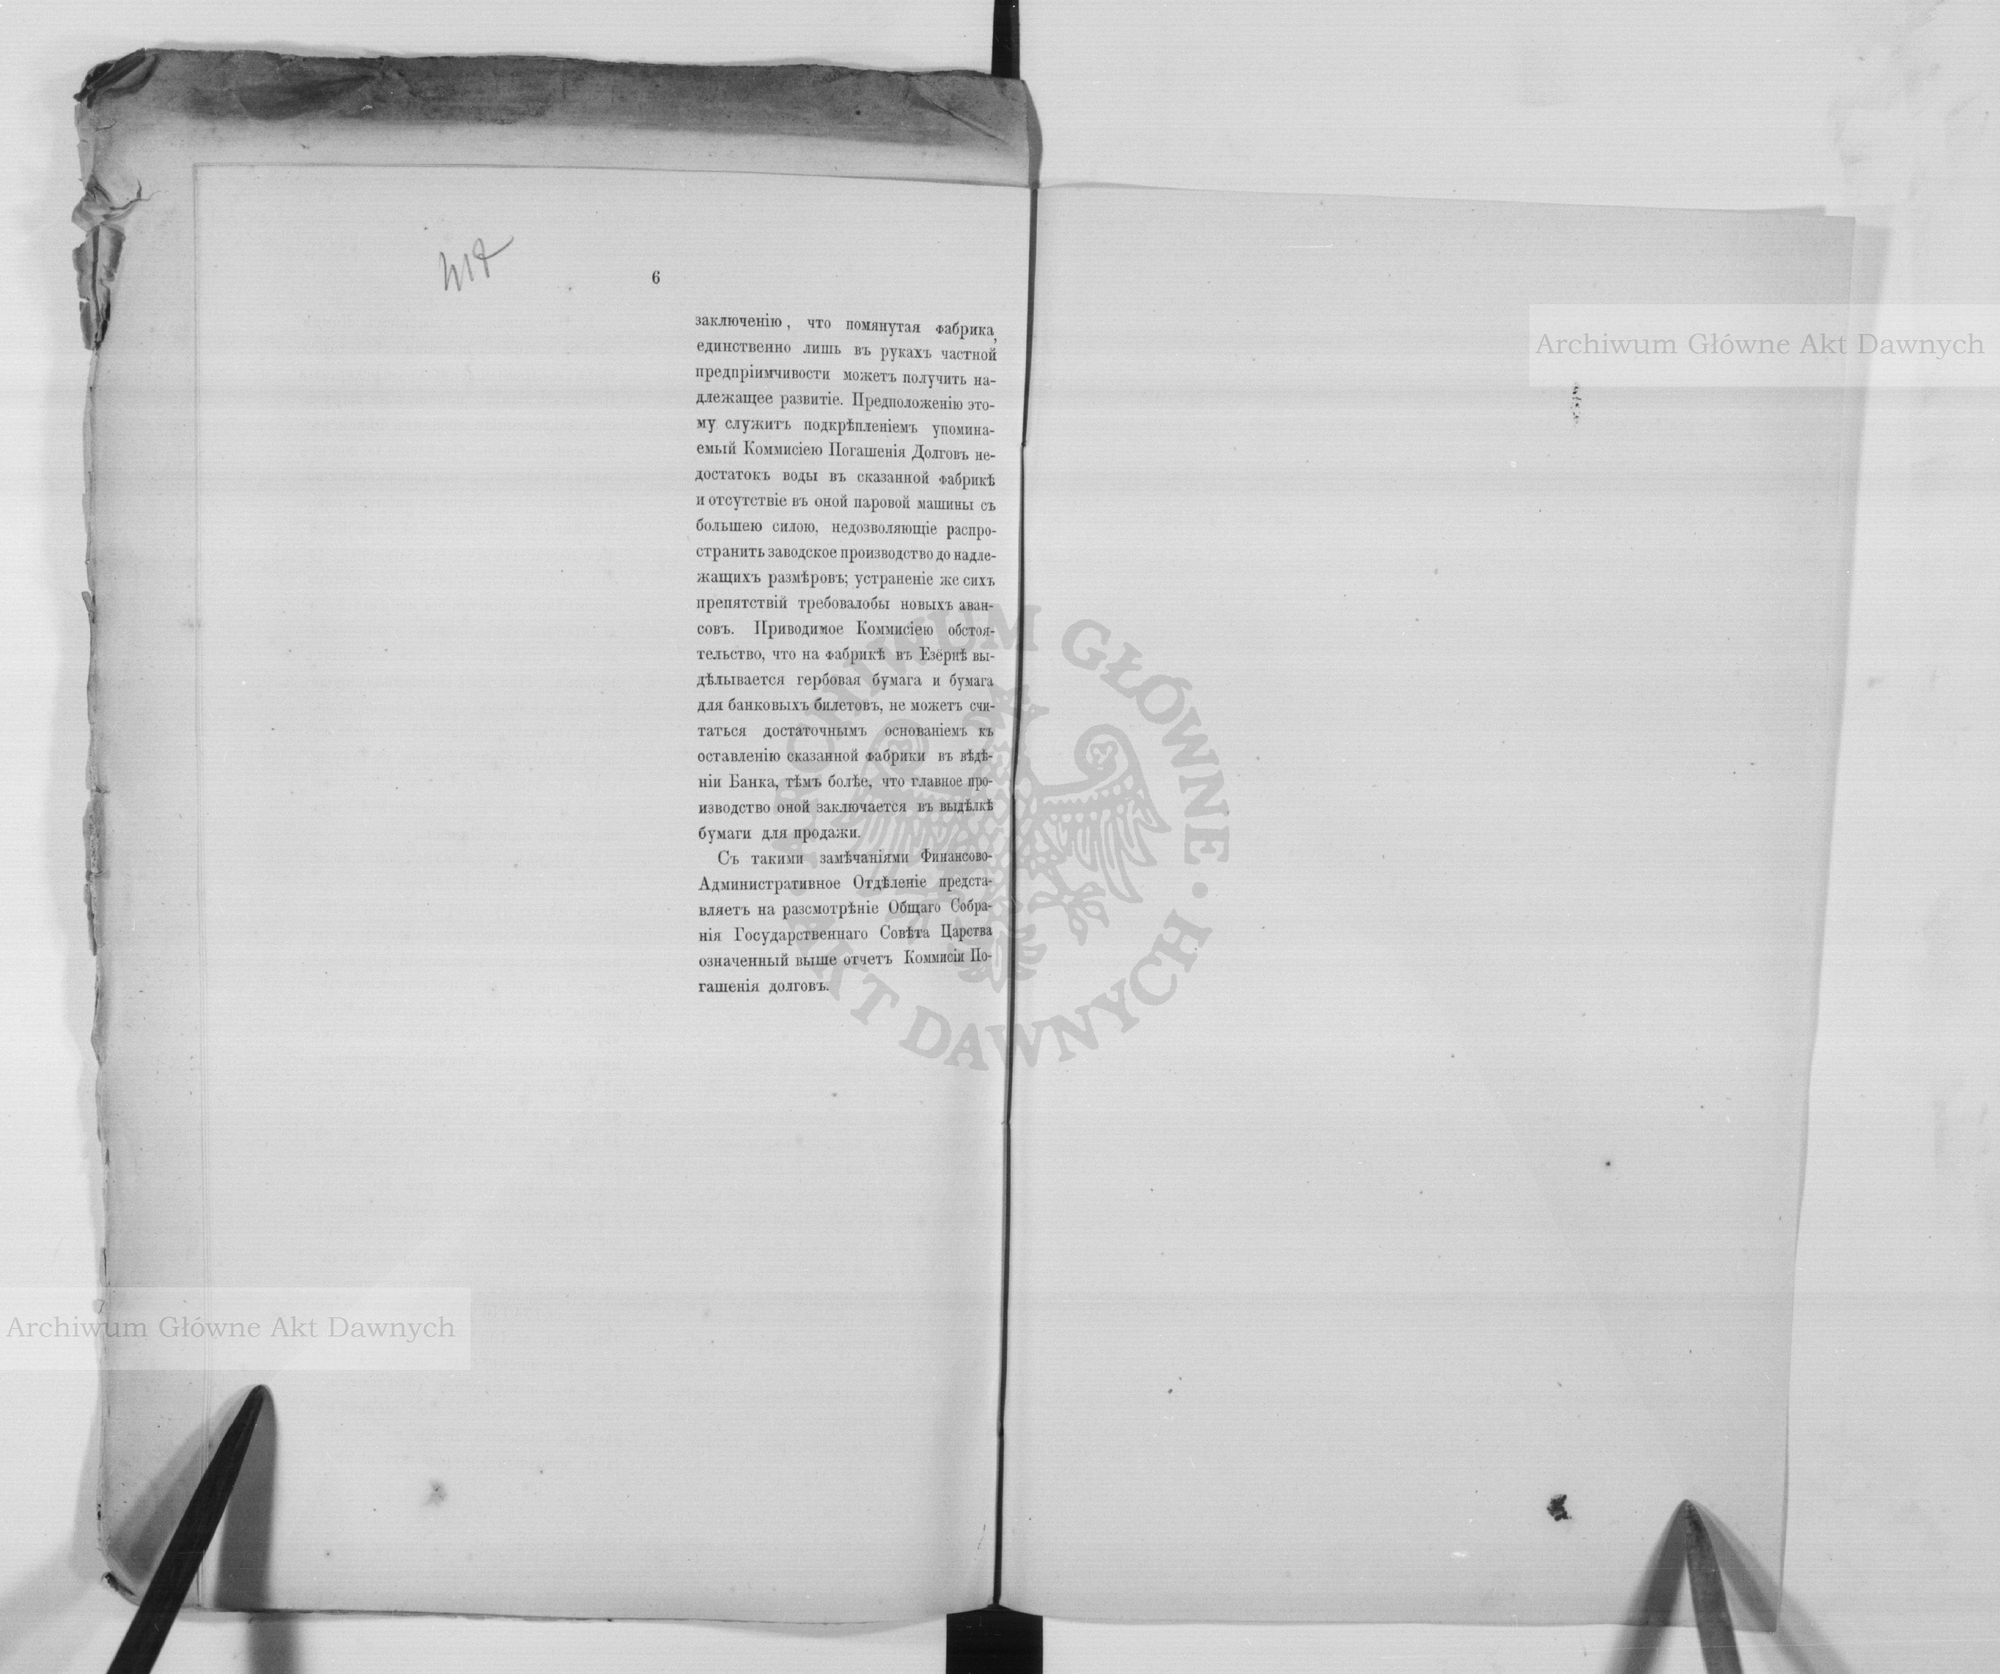 6
заключенію, что помянутая фабрика,
единственно лишь въ рукахъ частной
предпріимчивости можетъ получить на-
длежащее развитіе. Предположенію это-
му служитъ подкрѣпленіемъ упомина-
емый Коммисіею Погашенія Долговъ не-
достатокъ воды въ сказанной фабрикѣ
и отсутствіе въ оной паровой машины съ
большею силою, недозволяющіе распро-
странить заводское производство до надле-
жащихъ размѣровъ; устраненіе же сихъ
препятствій требовалобы новыхъ аван-
совъ. Приводимое Коммисіею обстоя-
тельство, что на фабрикѣ въ Езёрнѣ вы-
дѣлывается гербовая бумага и бумага
для банковыхъ билетовъ, не можетъ счи-
таться достаточнымъ основаніемъ къ
оставленію сказанной фабрики въ вѣдѣ-
ніи Банка, тѣмъ болѣе, что главное про-
изводство оной заключается въ выдѣлкѣ
бумаги для продажи.
Съ такими замѣчаніями Финансово-
Административное Отдѣленіе предста-
вляетъ на разсмотрѣніе Общаго Собра-
нія Государственнаго Совѣта Царства
означенный выше отчетъ Коммисіи По-
гашенія долговъ.
Archiwum Główne Akt Dawnych
Archiwum Główne Akt Dawnych
ARCHIWUM GŁÓWNE · AKT DAWNYCH ·